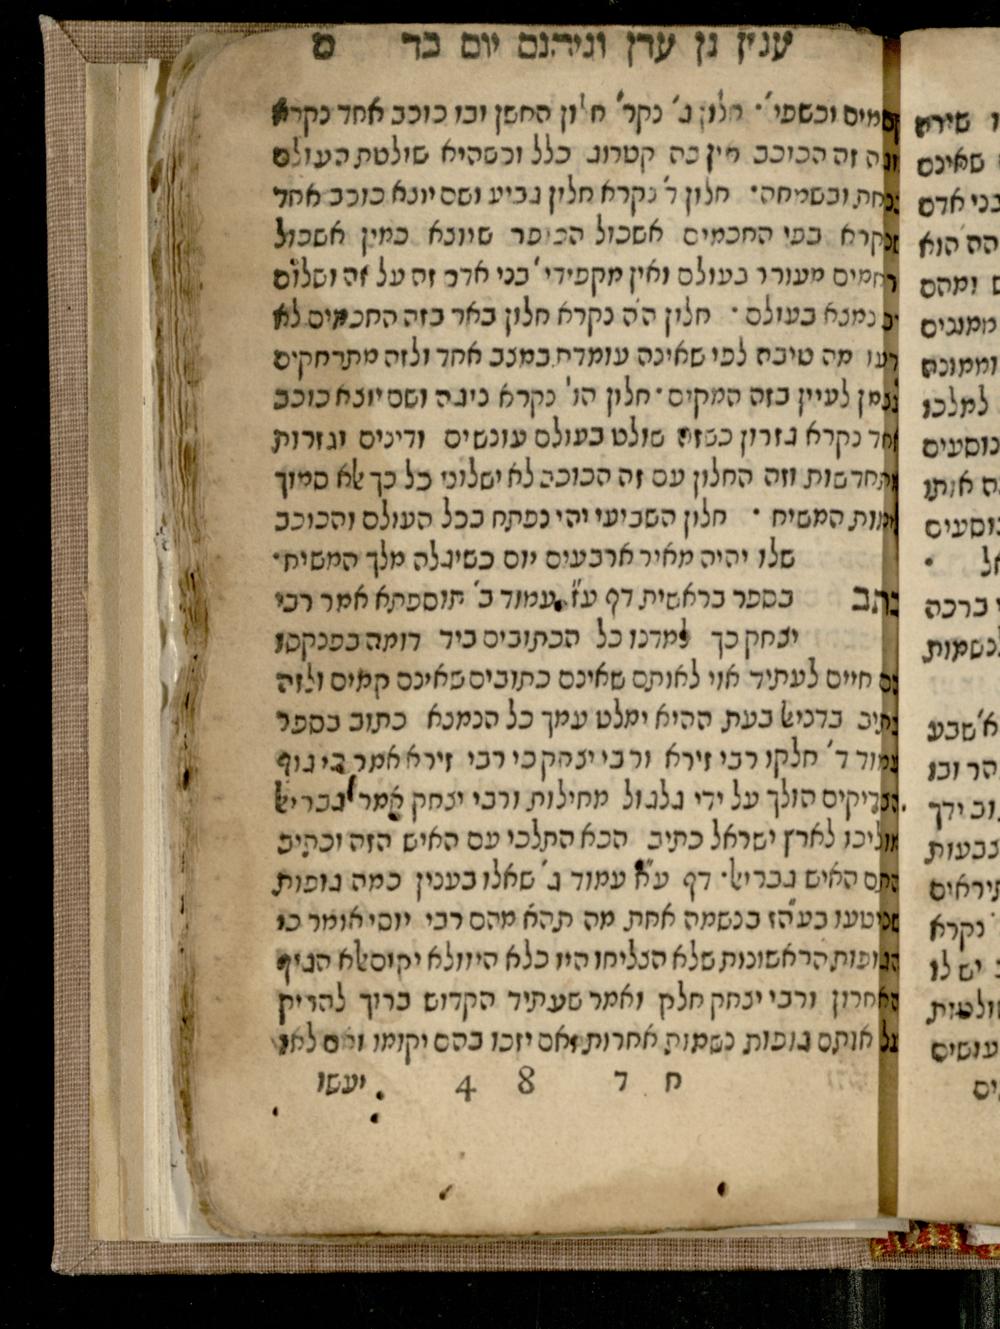 ענין גן עדן וגיהנם יום כד ס
קסמים וכשפי'. חלון ג' נקר' חלון החשן ובו כוכב אחד נקרא
זה הכוכב אין בה קטרוג כלל וכשהיא שולטת העולם
בנחת ובשמחה. חלון ד' נקרא חלון גביע ושם יוצא כוכב אחד
שנקרא בפי החכמים אשכול הכופר שיוצא כמין אשכול
רחמים מעורר בעולם ואין מקפידי' בני אדם זה על זה ושלום
רב נמצא בעולם. חלון הה' נקרא חלון באר בזה החכמים לא
ידעו מה טיבה לפי שאינה עומדת במצב אחד ולזה מתרחקים
עצמן לעיין בזה המקום. חלון הו' נקרא נוגה ושם יוצא כוכב
אחד נקרא גזרון כשזה שולט בעולם עונשים ודינים וגזרות
מתחדשות וזה החלון עם זה הכוכב לא ישלוט כל כך אלא סמוך
לימות המשיח. חלון השביעי יהי נפתח בכל העולם והכוכב
שלו יהיה מאיר ארבעים יום כשיגלה מלך המשיח.
כתב בספר בראשית דף ע"ז עמוד ב' תוספתא אמר רבי
יצחק כך למדנו כל הכתובים ביד דומה בפנקסו
קם חיים לעתיד אוי לאותם שאינם כתובים שאינם קמים ולזה
כתיב בדניאל בעת ההיא ימלט עמך כל הנמצא כתוב בספר
עמוד ד' חלקו רבי זירא ורבי יצחק כי רבי זירא אמר כי גוף
הצדיקים הולך על ידי גלגול מחילות ורבי יצחק אמר גבריאל
מוליכו לארץ ישראל כתיב הכא התלכי עם האיש הזה וכתיב
התם האיש גבריאל. דף ע"א עמוד ג' שאלו בענין כמה גופות
שניטעו בע"הז בנשמה אחת מה תהא מהם רבי יוסי אומר כי
הגופות הראשונות שלא הצליחו היו כלא היו ולא יקום אלא הגוף
האחרון ורבי יצחק חלק ואמר שעתיד הקדוש ברוך להריק
על אותם גופות נשמות אחרות ואם יזכו בהם יקומו ואם לאו
ח ד 48 יעשו